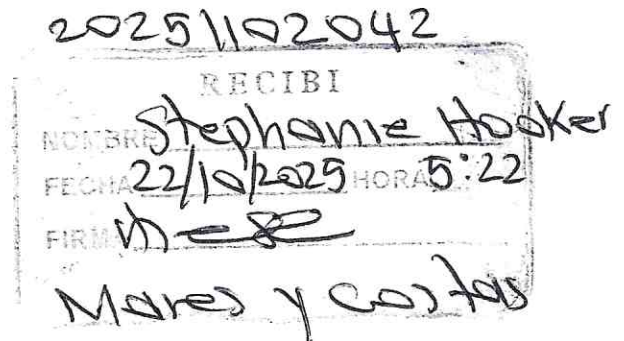 20251102042
RECIBI
NOMBRE Stephanie Hooker
FECHA 22/10/2025 HORA 5:22
FIRMA
Mares y Costas